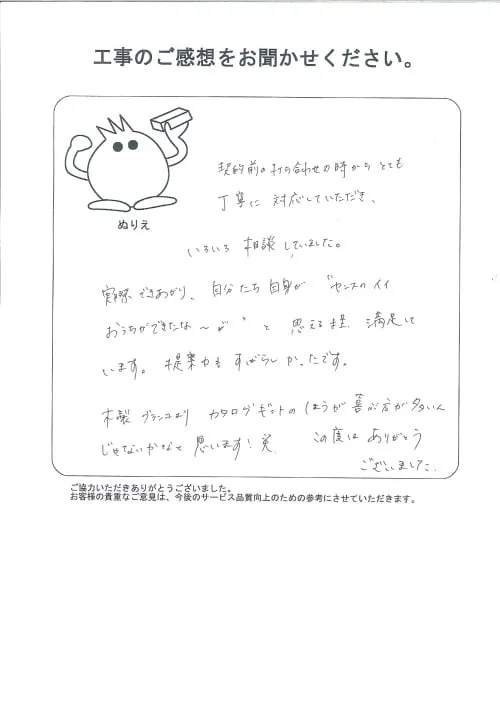 工事のご感想をお聞かせください。
ぬりえ
契約前の打ち合わせの時から とても
丁寧に 対応していただき、
いろいろ 相談していました。
実際 できあがり、自分たち自身が "センスのイイ
おうちができたな〜♪" と 思える程 満足して
います。提案力も すばらしかったです。
木製 ブランコより カタログギフトの ほうが 喜ぶ方が多いん
じゃないかなと 思います!笑 この度は ありがとう
ございました。
ご協力いただきありがとうございました。
お客様の貴重なご意見は、今後のサービス品質向上のための参考にさせていただきます。